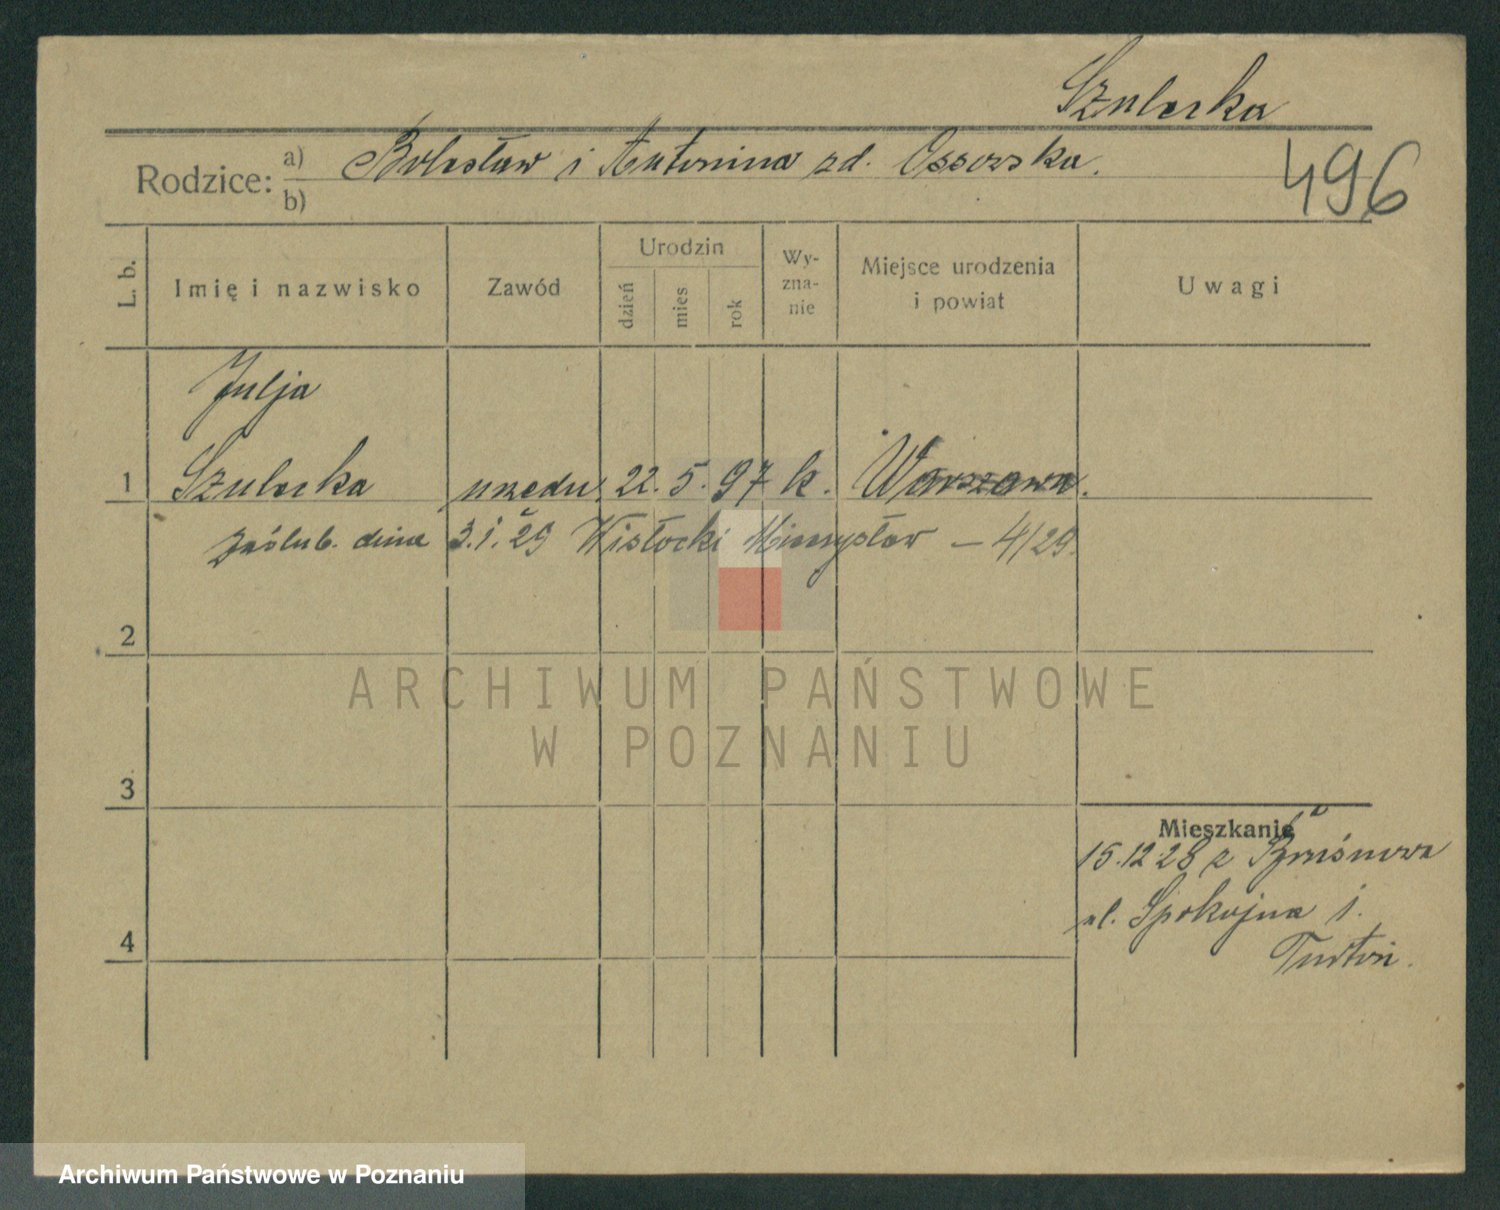 Szulerka
Rodzice: a) Bolesław i Antonina zd. Ossorska.
b)
496
L. b.
Imię i nazwisko
Zawód
Urodzin
dzień
mies
rok
Wy-
zna-
nie
Miejsce urodzenia
i powiat
Uwagi
Julja
1 Szulerka urzędn. 22. 5. 97 k. Warszawa.
zaślub. dnia 3.1.29 Wisłocki Mieczysław – 4/29.
2
ARCHIWUM PAŃSTWOWE
W POZNANIU
3
Mieszkanie
15.12.28 z
ul. Spokojna 1.
4
Archiwum Państwowe w Poznaniu